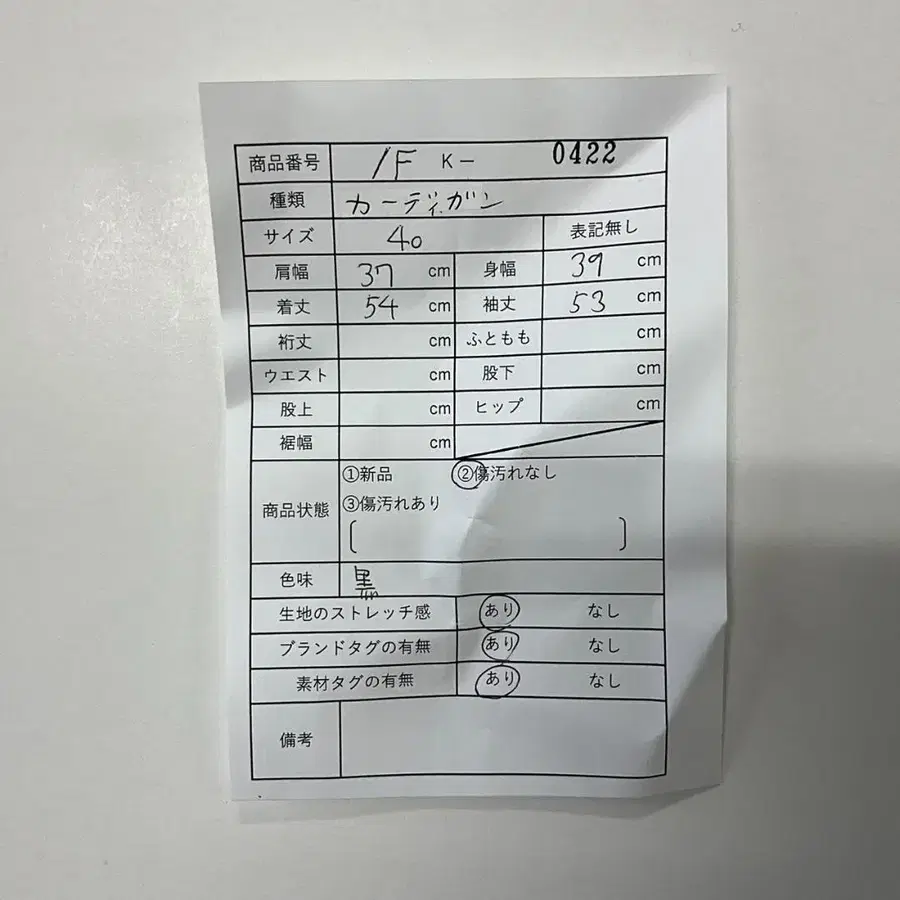 商品番号 1F K- 0422
種類 カーディガン
サイズ 40 表記無し
肩幅 37 cm 身幅 39 cm
着丈 54 cm 袖丈 53 cm
裄丈 cm ふともも cm
ウエスト cm 股下 cm
股上 cm ヒップ cm
裾幅 cm
①新品 ②傷汚れなし
商品状態 ③傷汚れあり
[ ]
色味 黒
生地のストレッチ感 あり なし
ブランドタグの有無 あり なし
素材タグの有無 あり なし
備考